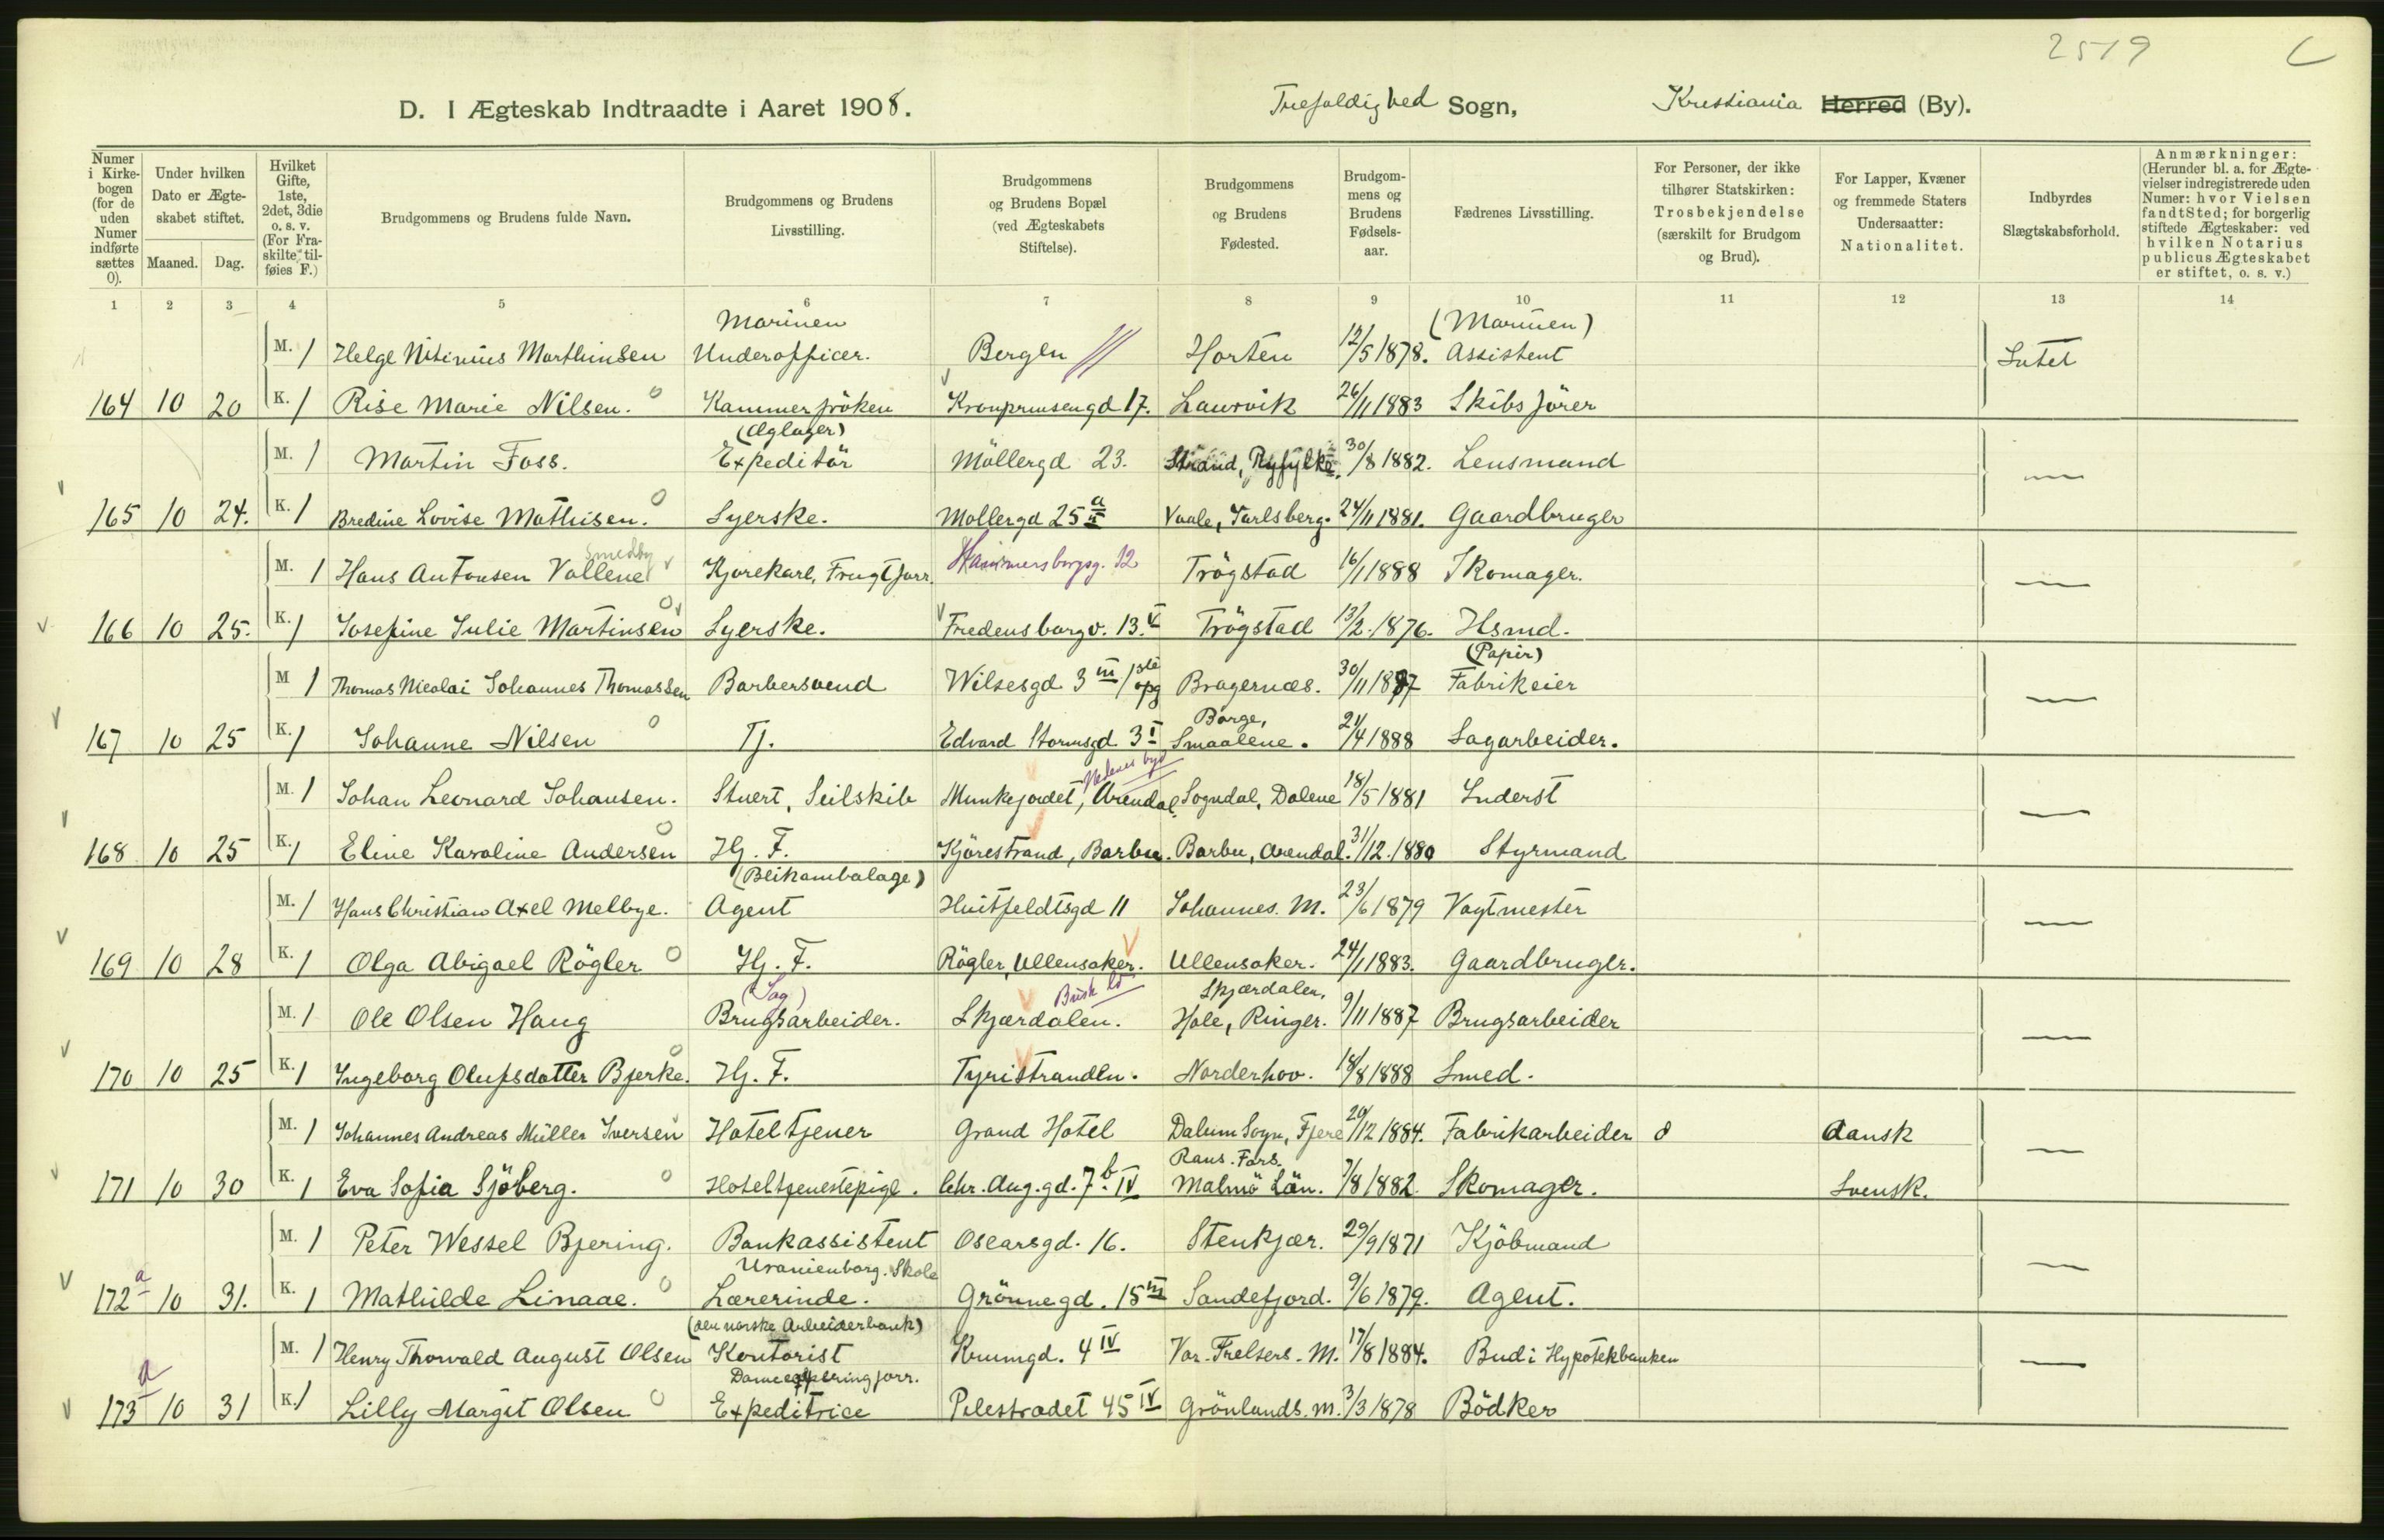 2519 C
D. I Ægteskab Indtraadte i Aaret 1908. Trefoldighed Sogn, Kristiania Herred (By).
Numer i Kirkebogen (for de uden Numer indførte sættes 0).
Under hvilken Dato er Ægteskabet stiftet.
Maaned. Dag.
Hvilket Gifte, 1ste, 2det, 3die o. s. v. (For Fraskilte tilføies F.)
Brudgommens og Brudens fulde Navn.
Brudgommens og Brudens Livsstilling.
Brudgommens og Brudens Bopæl (ved Ægteskabets Stiftelse).
Brudgommens og Brudens Fødested.
Brudgommens og Brudens Fødselsaar.
Fædrenes Livsstilling.
For Personer, der ikke tilhører Statskirken: Trosbekjendelse (særskilt for Brudgom og Brud).
For Lapper, Kvæner og fremmede Staters Undersaatter: Nationalitet.
Indbyrdes Slægtskabsforhold.
Anmærkninger: (Herunder bl. a. for Ægtevielser indregistrerede uden Numer: hvor Vielsen fandt Sted; for borgerlig stiftede Ægteskaber: ved hvilken Notarius publicus Ægteskabet er stiftet, o. s. v.)
1 2 3 4 5 6 7 8 9 10 11 12 13 14
Marinen (Marinen)
M. 1 Helge Marthinsen Underofficer. Bergen Horten 12/5 1878. Assistent Intet
164 10 20 K. 1 Rise Marie Nilsen. Kammerfröken Kronprinsengd 17. Laurvik 26/11 1883 Skibsförer
(Øglager)
M. 1 Martin Foss. Expeditör Möllergd 23. Strand, Ryfylke. 30/8 1882. Lensmand —
165 10 24. K. 1 Bredine Lovise Mathisen. Syerske. Möllergd 25 a II Vaale, Jarlsberg. 24/11 1881. Gaardbruger
Smedby
M. 1 Hans Antonsen Vollene Kjørekarl, Frugtforr. Hammersborgsg. 12 Trögstad 16/1 1888 Skomager. —
166 10 25. K. 1 Josefine Julie Martinsen Syerske. Fredensborgv. 13. V Trögstad 13/2. 1876. Hsmd.
(Papir)
M 1 Thomas Nicolai Johannes Thomassen Barbersvend Wilsesgd 3 III 1ste opg Bragernæs. 30/11 1887 Fabrikeier —
Borge,
167 10 25 K. 1 Johanne Nilsen Tj. Edvard Stormsgd. 3 I Smaalene. 21/4 1888 Sagarbeider.
Nedenes
M. 1 Johan Leonard Johansen. Stuert, Seilskib Munkejordet, Arendal. Sogndal, Dalene 18/5 1881 Inderst —
168 10 25 K. 1 Eline Karoline Andersen Hj. F. Kjörestrand, Barbu. Barbu, Arendal. 31/12. 1880 Styrmand
(Blikambalage)
M. 1 Hans Christian Axel Melbye. Agent Huitfeldtsgd 11 Johannes. M. 23/6 1879 Vagtmester —
169 10 28 K. 1 Olga Abigael Rögler Hj. F. Rögler, Ullensaker. Ullensaker. 24/1 1883. Gaardbruger.
(Sag) Busk Skjærdalen,
M. 1 Ole Olsen Haug Brugsarbeider. Skjærdalen. Hole, Ringer. 9/11 1887 Brugsarbeider —
170 10 25 K. 1 Ingeborg Olufsdatter Bjerke. Hj. F. Tyristranden. Norderhov. 18/8 1888 Smed.
M. 1 Johannes Andreas Müller Iversen Hoteltjener Grand Hotel Dalum Sogn, 29/12 1884. Fabrikarbeider dansk —
Raus. Fors.
171 10 30 K. 1 Eva Sofia Sjöberg. Hoteltjenestepige. Chr. Aug. gd. 7 b. IV Malmö Län. 7/8 1882. Skomager. Svensk.
M. 1 Peter Wessel Bjering. Bankassistent Oscarsgd. 16. Stenkjær. 29/9 1871 Kjöbmand —
Uranienborg. Skole
172 a 10 31. K. 1 Mathilde Linaae. Lærerinde. Grönnegd. 15 III Sandefjord. 9/6 1879. Agent.
(den norske Arbeiderbank)
M. 1 Henry Thorvald August Olsen Kontorist Krumgd. 4 IV Vor-Frelsers. M. 17/8 1884. Bud i Hypotekbanken —
173 a 10 31 K. 1 Lilly Margit Olsen Expeditrice Pilestrædet 45 IV Grönlands. M. 3/3 1878 Bödker